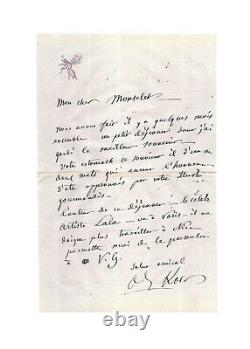 Mon cher Monselet
nous avons fait il y a quelques mois
ensemble un petit déjeuner dont j'ai
gardé le meilleur souvenir
votre estomach se souvient il d'un ou
deux mets qui eurent l'honneur
d'être approuvés par votre illustre
gourmandise.
L'auteur de ce déjeuner - le célèbre
Artiste Lala - va à Paris. il ne
daigne plus travailler à Nice
permettez moi de le présenter
à V. G.
Salut amical